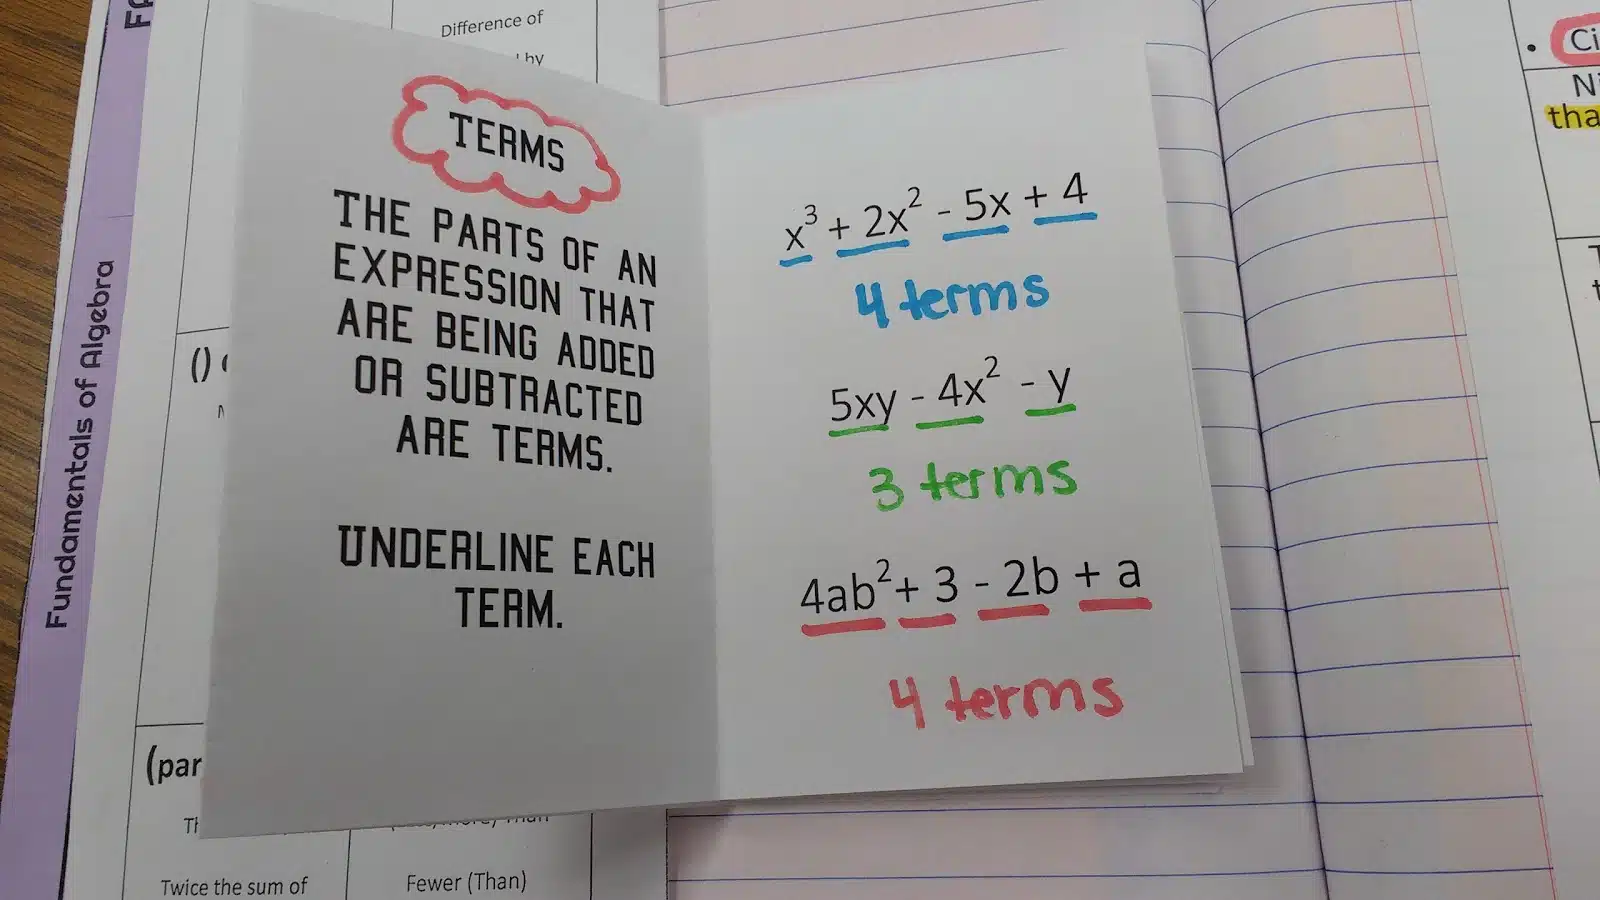 Fundamentals of Algebra
Difference of
by
()
(par
Twice the sum of
Fewer (Than)
TERMS
THE PARTS OF AN
EXPRESSION THAT
ARE BEING ADDED
OR SUBTRACTED
ARE TERMS.
UNDERLINE EACH
TERM.
x³ + 2x² - 5x + 4
4 terms
5xy - 4x² - y
3 terms
4ab² + 3 - 2b + a
4 terms
Ci
Ni
tha